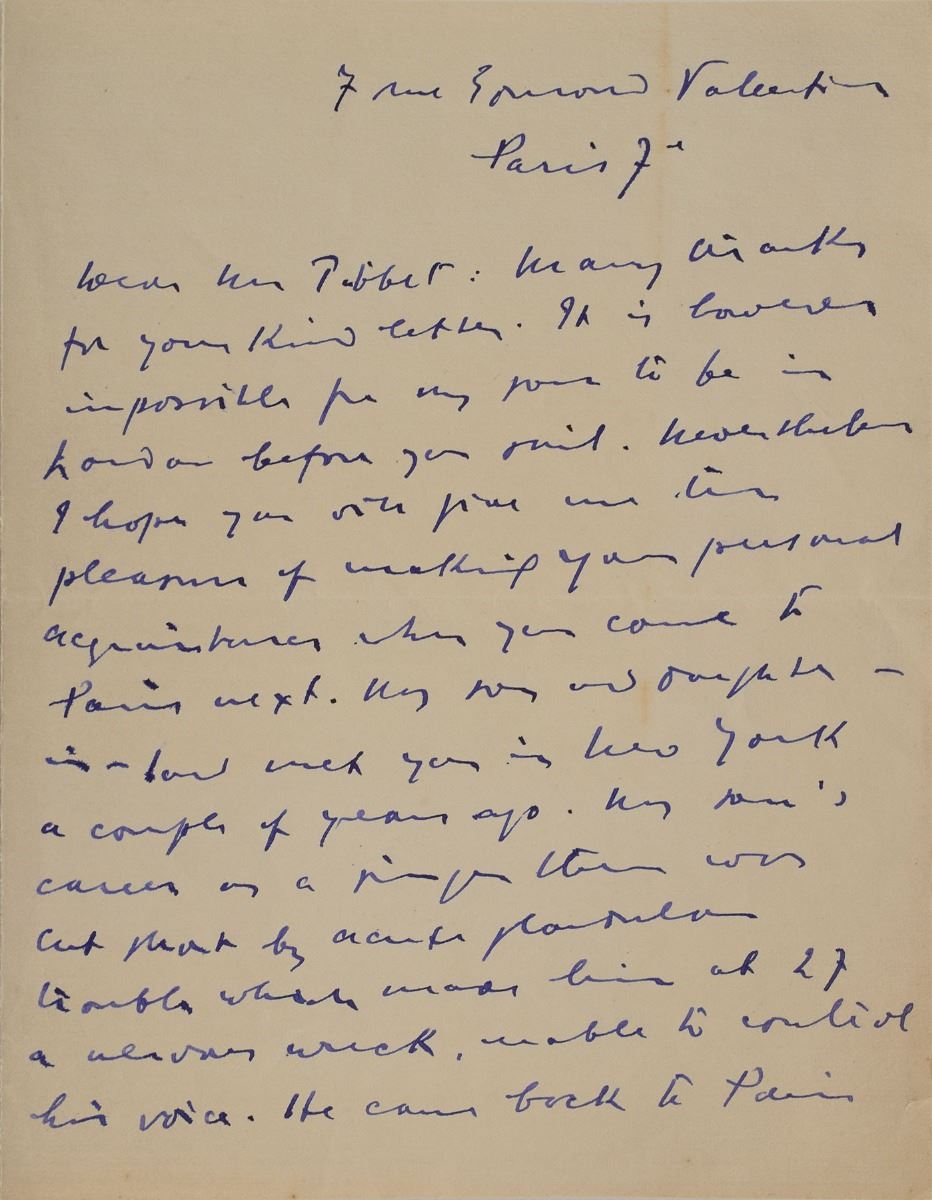 7 rue Edmond Valentin
Paris 7e
Dear Mr Tibbet : Many thanks
for your kind letter. It is however
impossible for my son to be in
London before you sail. Nevertheless
I hope you will give me the
pleasure of making your personal
acquaintance when you come to
Paris next. My son and daughter -
in-law met you in New York
a couple of years ago. My son's
career as a singer there was
cut short by acute glandular
trouble which made him at 27
a nervous wreck, unable to control
his voice. He came back to Paris